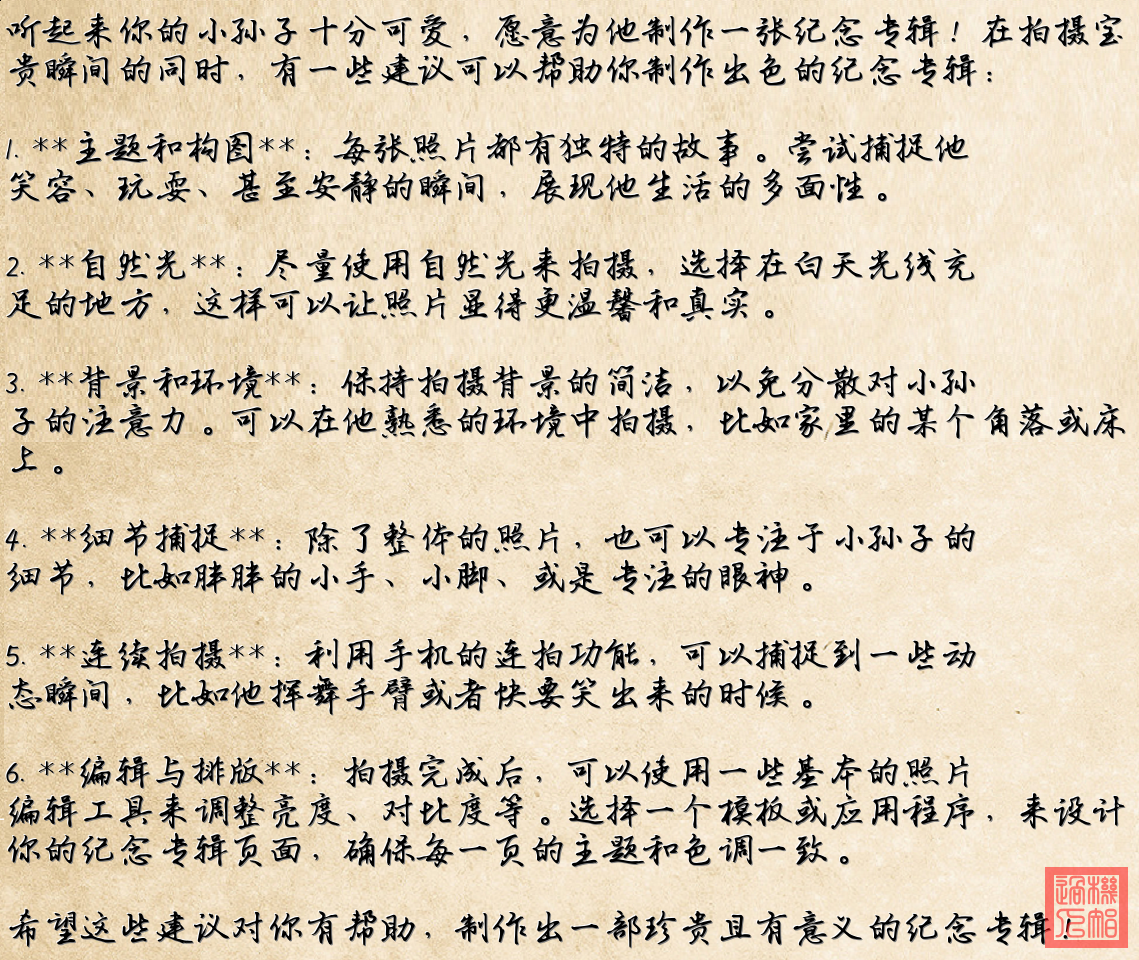 听起来你的小孙子十分可爱，愿意为他制作一张纪念专辑！在拍摄宝
贵瞬间的同时，有一些建议可以帮助你制作出色的纪念专辑：
1. **主题和构图**：每张照片都有独特的故事。尝试捕捉他
笑容、玩耍、甚至安静的瞬间，展现他生活的多面性。
2. **自然光**：尽量使用自然光来拍摄，选择在白天光线充
足的地方，这样可以让照片显得更温馨和真实。
3. **背景和环境**：保持拍摄背景的简洁，以免分散对小孙
子的注意力。可以在他熟悉的环境中拍摄，比如家里的某个角落或床
上。
4. **细节捕捉**：除了整体的照片，也可以专注于小孙子的
细节，比如胖胖的小手、小脚、或是专注的眼神。
5. **连续拍摄**：利用手机的连拍功能，可以捕捉到一些动
态瞬间，比如他挥舞手臂或者快要笑出来的时候。
6. **编辑与排版**：拍摄完成后，可以使用一些基本的照片
编辑工具来调整亮度、对比度等。选择一个模板或应用程序，来设计
你的纪念专辑页面，确保每一页的主题和色调一致。
希望这些建议对你有帮助，制作出一部珍贵且有意义的纪念专辑！